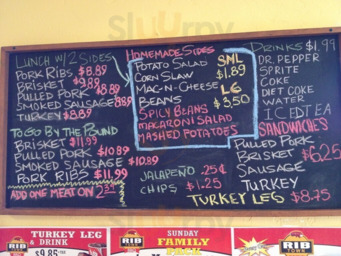 LUNCH W/2 SIDES
PORK RIBS $8.89
BRISKET $9.89
PULLED PORK $8.89
SMOKED SAUSAGE $8.89
TURKEY $8.89
TO GO BY THE POUND
BRISKET $11.99
PULLED PORK $10.89
SMOKED SAUSAGE $10.89
PORK RIBS $11.99
ADD ONE MEAT ON
HOMEMADE SIDES
POTATO SALAD SML
CORN SLAW $1.89
MAC-N-CHEESE LG
BEANS $3.50
SPICY BEANS
MACARONI SALAD
MASHED POTATOES
JALAPEÑO .25¢
CHIPS $1.25
TURKEY LEG $8.75
DRINKS $1.99
DR. PEPPER
SPRITE
COKE
DIET COKE
WATER
ICED TEA
SANDWICHES
PULLED PORK
BRISKET $6.25
SAUSAGE
TURKEY
TURKEY LEG
& DRINK
$9.85
RIB
SUNDAY
FAMILY
PACK
RIB
RIB
Sluurpy